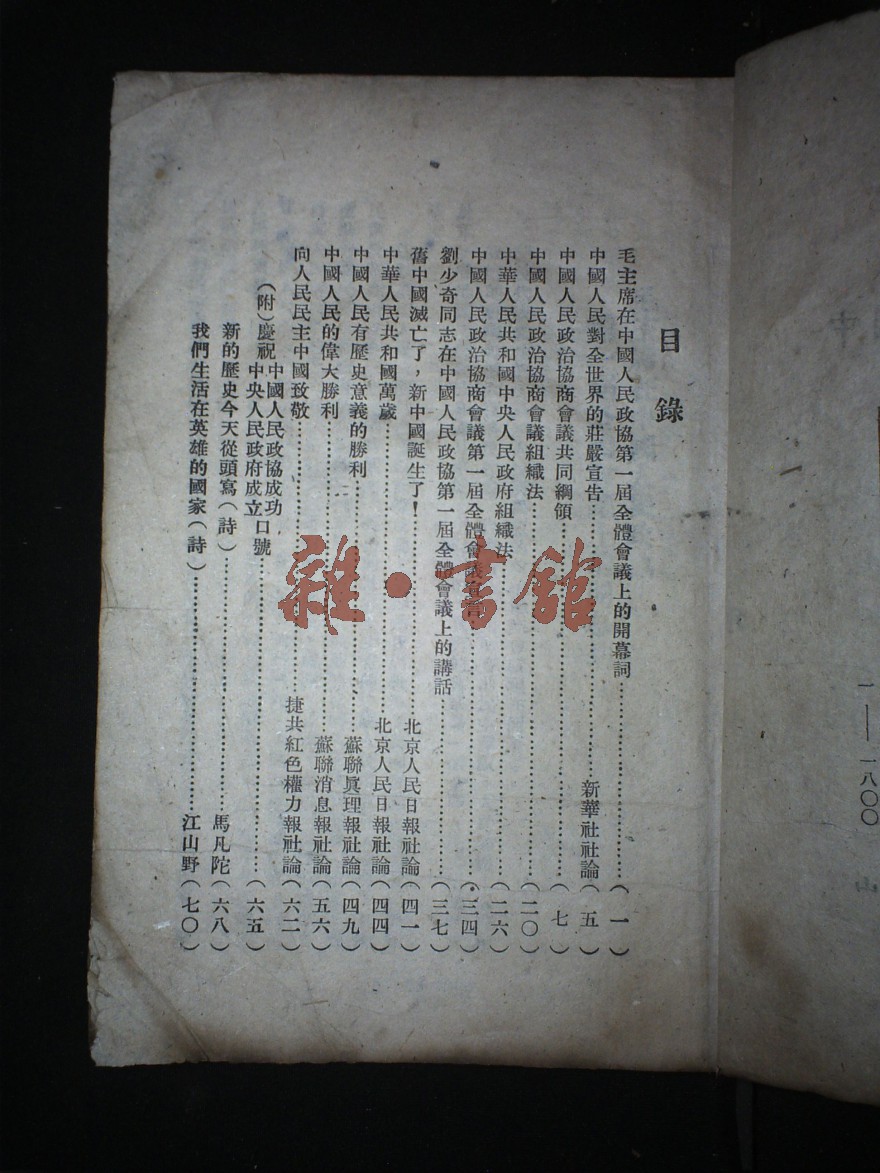 目錄
毛主席在中國人民政協第一屆全體會議上的開幕詞……(一)
中國人民對全世界的莊嚴宣告……新華社社論(五)
中國人民政治協商會議共同綱領……(七)
中國人民政治協商會議組織法……(二〇)
中華人民共和國中央人民政府組織法……(二六)
中國人民政治協商會議第一屆全體會議宣言……(三四)
劉少奇同志在中國人民政協第一屆全體會議上的講話……(三七)
舊中國滅亡了,新中國誕生了!……北京人民日報社論(四一)
中華人民共和國萬歲……北京人民日報社論(四四)
中國人民有歷史意義的勝利……蘇聯眞理報社論(四九)
中國人民的偉大勝利……蘇聯消息報社論(五六)
向人民民主中國致敬……捷共紅色權力報社論(六二)
(附)慶祝中國人民政協成功中央人民政府成立口號……(六五)
新的歷史今天從頭寫(詩)……馬凡陀(六八)
我們生活在英雄的國家(詩)……江山野(七〇)
雜·書館
中
一——一八〇〇
山